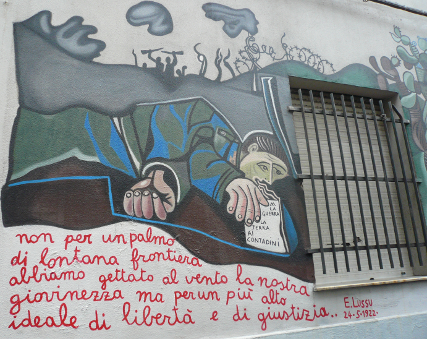 LA
GUERRA
LA
TERRA
AI
CONTADINI
non per un palmo
di lontana frontiera
abbiamo gettato al vento la nostra
giovinezza ma per un più alto
ideale di libertà e di giustizia..
E. Lussu
24-5-1922-